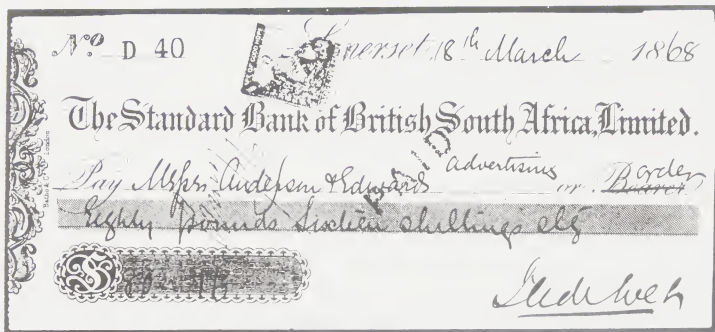 No. D 40 Somerset 18th March 1868
The Standard Bank of British South Africa, Limited.
PAID
Pay Messrs Anderson & Edwards advertising or Bearer order
Eighty pounds Sixteen shillings
£